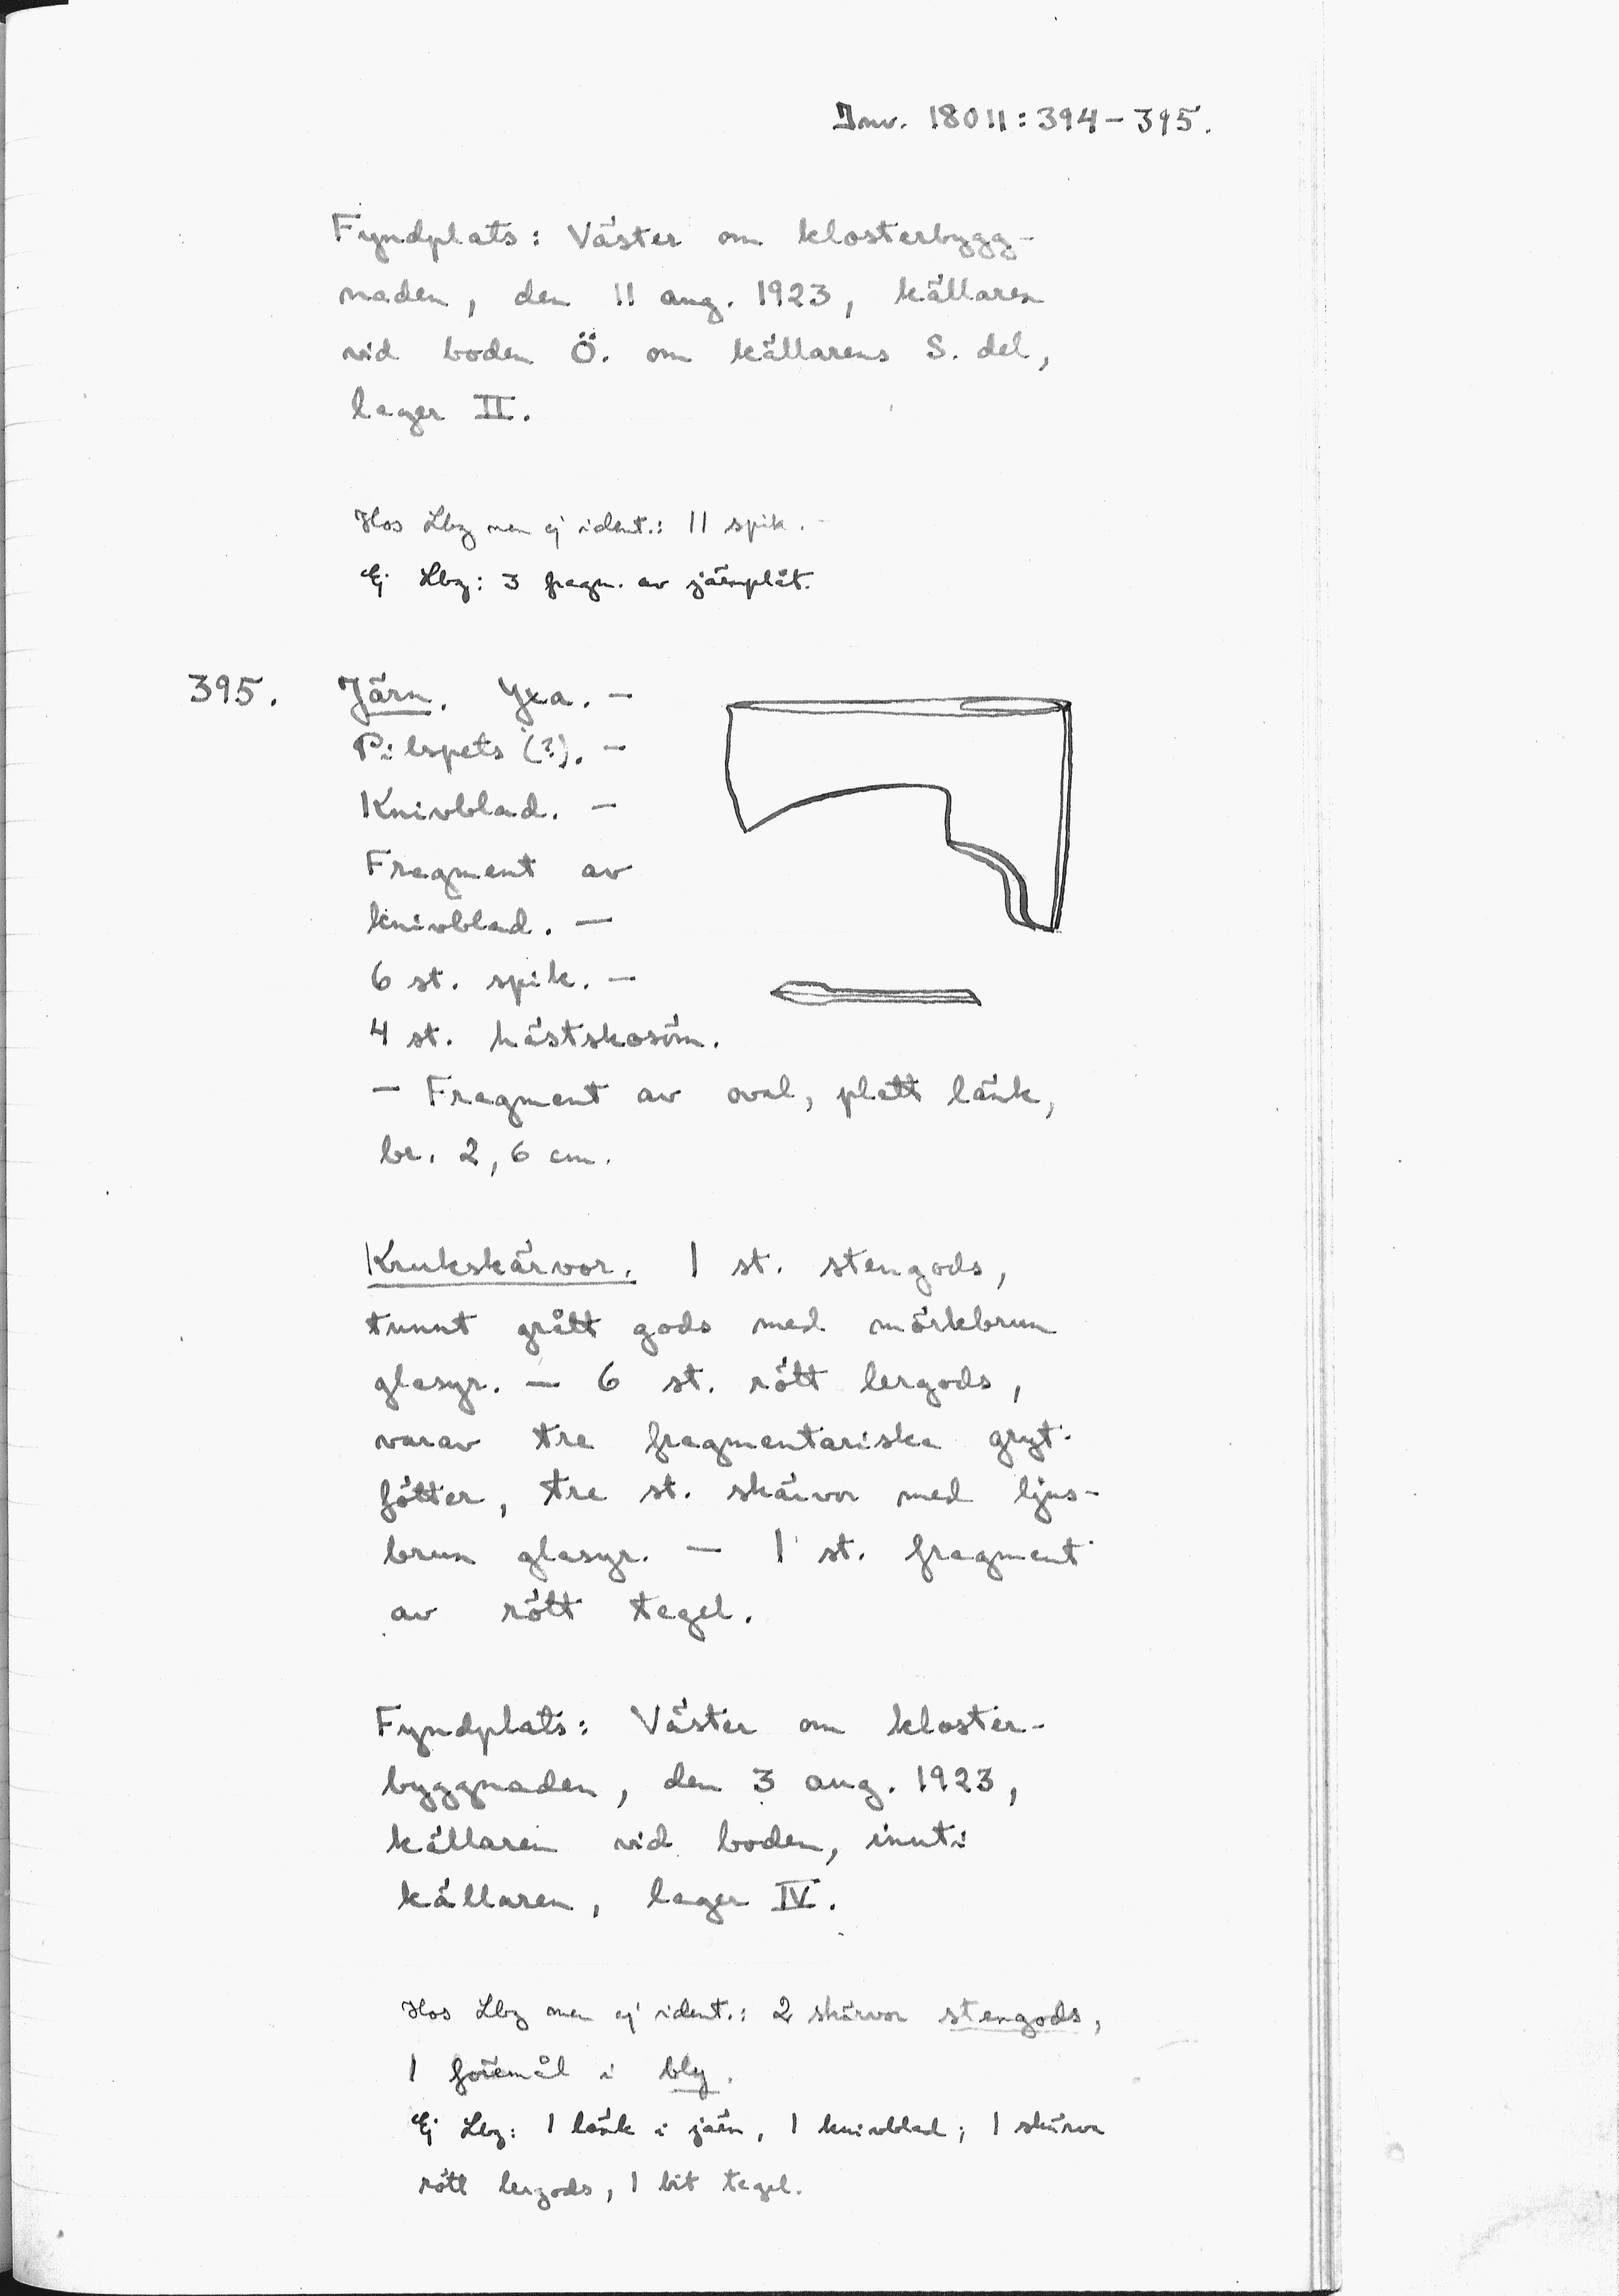 Inv. 18011:394-395.
Fyndplats: Väster om klosterbygg-
naden, den 11 aug. 1923, källaren
vid boden Ö. om källarens S. del,
lager II.
Hos Lbg men ej ident.: 11 spik. -
Ej Lbg: 3 fragm. av järnplåt.
395. Järn. Yxa. -
Pilspets (?). -
Knivblad. -
Fragment av
knivblad. -
6 st. spik. -
4 st. hästskosöm.
- Fragment av oval, platt länk,
br. 2,6 cm.
Krukskärvor. 1 st. stengods,
tunnt grått gods med mörkbrun
glasyr. - 6 st. rött lergods,
varav tre fragmentariska gryt-
fötter, tre st. skärvor med ljus-
brun glasyr. - 1 st. fragment
av rött tegel.
Fyndplats: Väster om kloster-
byggnaden, den 3 aug. 1923,
källaren vid boden, inuti
källaren, lager IV.
Hos Lbg men ej ident.: 2 skärvor stengods,
1 föremål i bly.
Ej Lbg: 1 länk i järn, 1 knivblad; 1 skärva
rött lergods, 1 bit tegel.